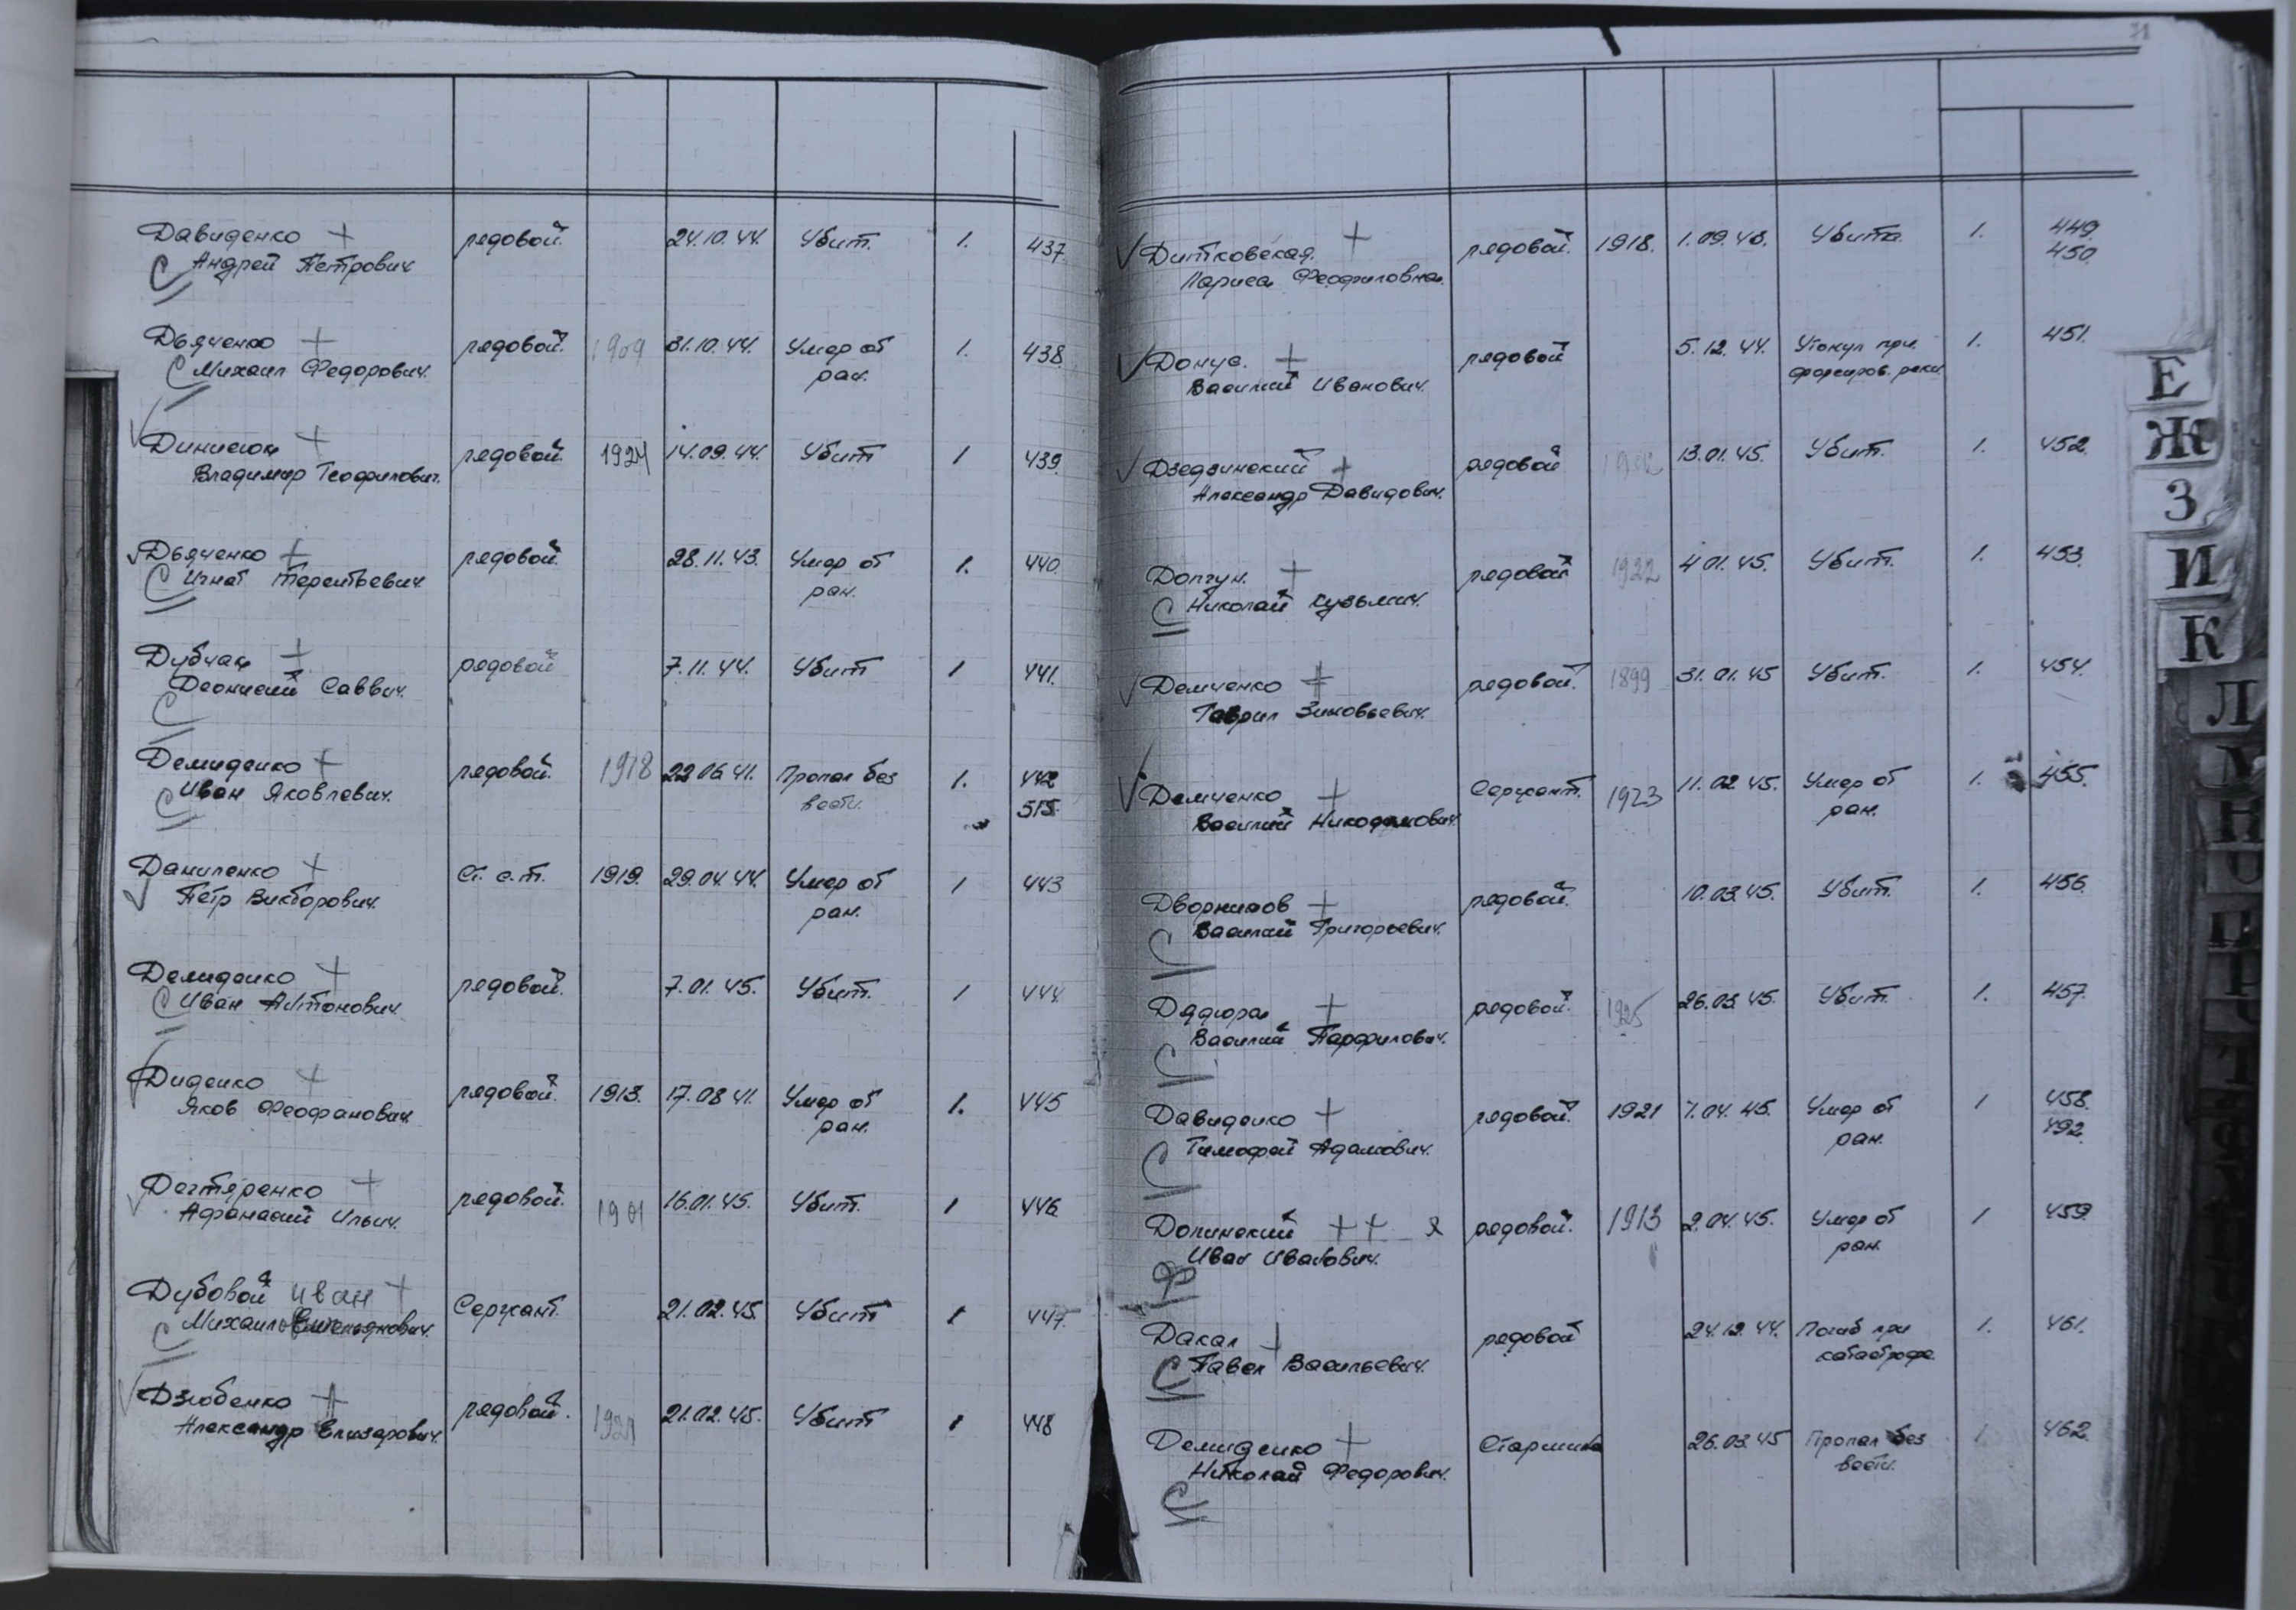 Давиденко + рядовой. 24.10.44. Убит. 1. 437.
Андрей Петрович
Дьяченко + рядовой. 1909 31.10.44. Умер от 1. 438
Михаил Федорович. ран.
Динисюк + рядовой. 1924 14.09.44. Убит 1 439.
Владимир Теофилович.
Дьяченко + рядовой. 28.11.43. Умер от 1. 440
Игнат Терентьевич ран.
Дубчак + рядовой 7.11.44. Убит 1 441.
Деонисий Саввич.
Демиденко + рядовой. 1918 22.06.41. Пропал без 1. 442
Иван Яковлевич. вести. 515.
Даниленко + Ст. с-т. 1919. 29.04.44. Умер от 1 443
Пётр Викторович. ран.
Демиденко + рядовой. 7.01.45. Убит. 1 444
Иван Антонович
Диденко + рядовой. 1913. 17.08.41. Умер от 1. 445
Яков Феофанович ран.
Дегтяренко + рядовой. 1901 16.01.45. Убит. 1 446
Афанасий Ильич.
Дубовой Иван + Сержант. 21.02.45. Убит 1 447.
Михайлович.
Дзюбенко + рядовой. 21.02.45. Убит 1 448
Александр Елизарович.
71
Дитковская. + рядовой. 1918. 1.09.43. Убита. 1. 449
Лариса Феофиловна. 450.
Донус. + рядовой 5.12.44. Утонул при 1. 451.
Василий Иванович. форсиров. реки
Дзедзинский + рядовой 13.01.45. Убит. 1. 452.
Александр Давидович.
Долгун. + рядовой 1922 4.01.45. Убит. 1. 453.
Николай Кузьмич.
Демченко + рядовой. 1899 31.01.45 Убит. 1. 454.
Гаврил Зиновьевич.
Демченко + Сержант. 1923 11.02.45. Умер от 1. 455.
Василий Никодимович. ран.
Дворников + рядовой. 10.03.45. Убит. 1. 456.
Василий Григорьевич.
Дядюра + рядовой. 1925 26.03.45. Убит. 1. 457.
Василий Парфилович.
Давиденко + рядовой. 1921 7.04.45. Умер от 1 458.
Тимофей Адамович. ран. 492.
Долинский ++ рядовой. 1913 2.04.45. Умер от 1 459.
Иван Иванович. ран.
Дакал + рядовой 24.12.44. Погиб при 1. 461.
Павел Васильевич. катастрофе.
Демиденко + Старшина 26.03.45 Пропал без 1 462.
Николай Федорович. вести.
Е
Ж
З
И
К
Л
М
Н